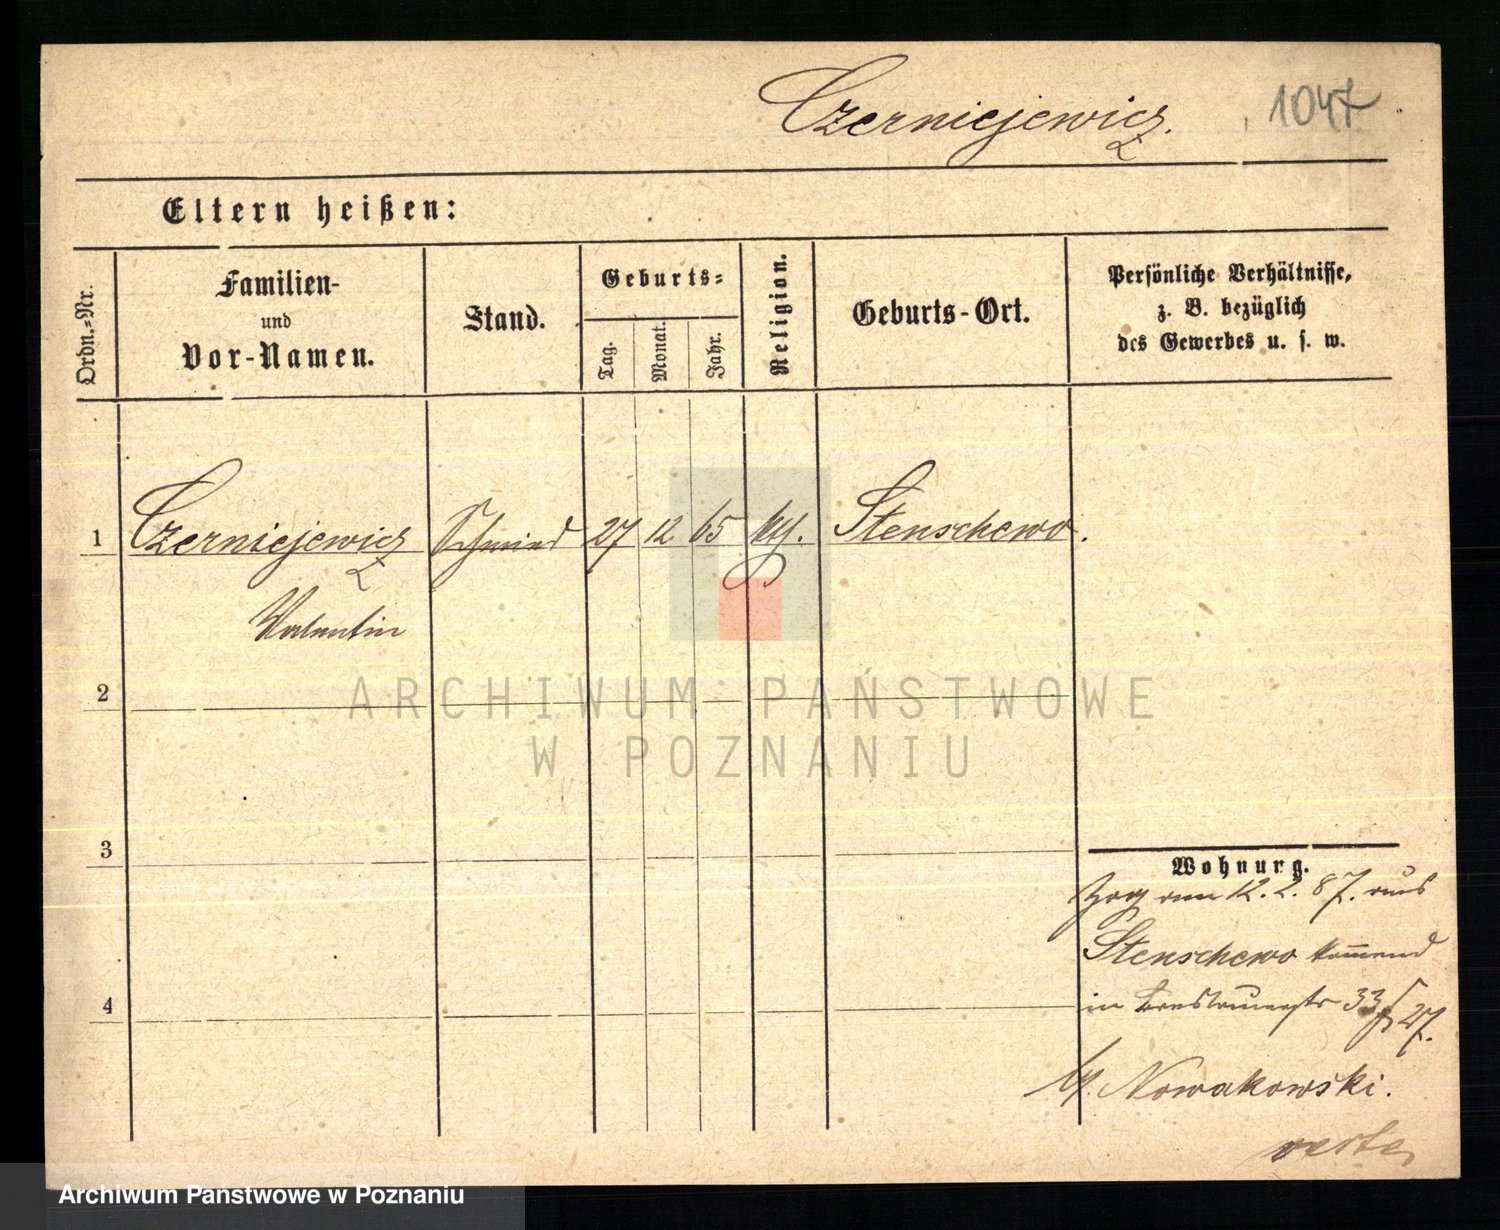 Czerniejewicz. 1047
Eltern heißen:
Ordn.-Nr.
Familien-
und
Vor-Namen.
Stand.
Geburts-
Tag.
Monat.
Jahr.
Religion.
Geburts-Ort.
Persönliche Verhältnisse,
z. B. bezüglich
des Gewerbes u. s. w.
1 Czerniejewicz Schmied 27 12 65 kth. Stenschewo.
Valentin
2
3
4
Wohnung.
Zog am 12. 2. 87. aus
Stenschewo kom̅end
in 33 27.
b/. Nowakowski.
verte
ARCHIWUM PAŃSTWOWE
W POZNANIU
Archiwum Państwowe w Poznaniu